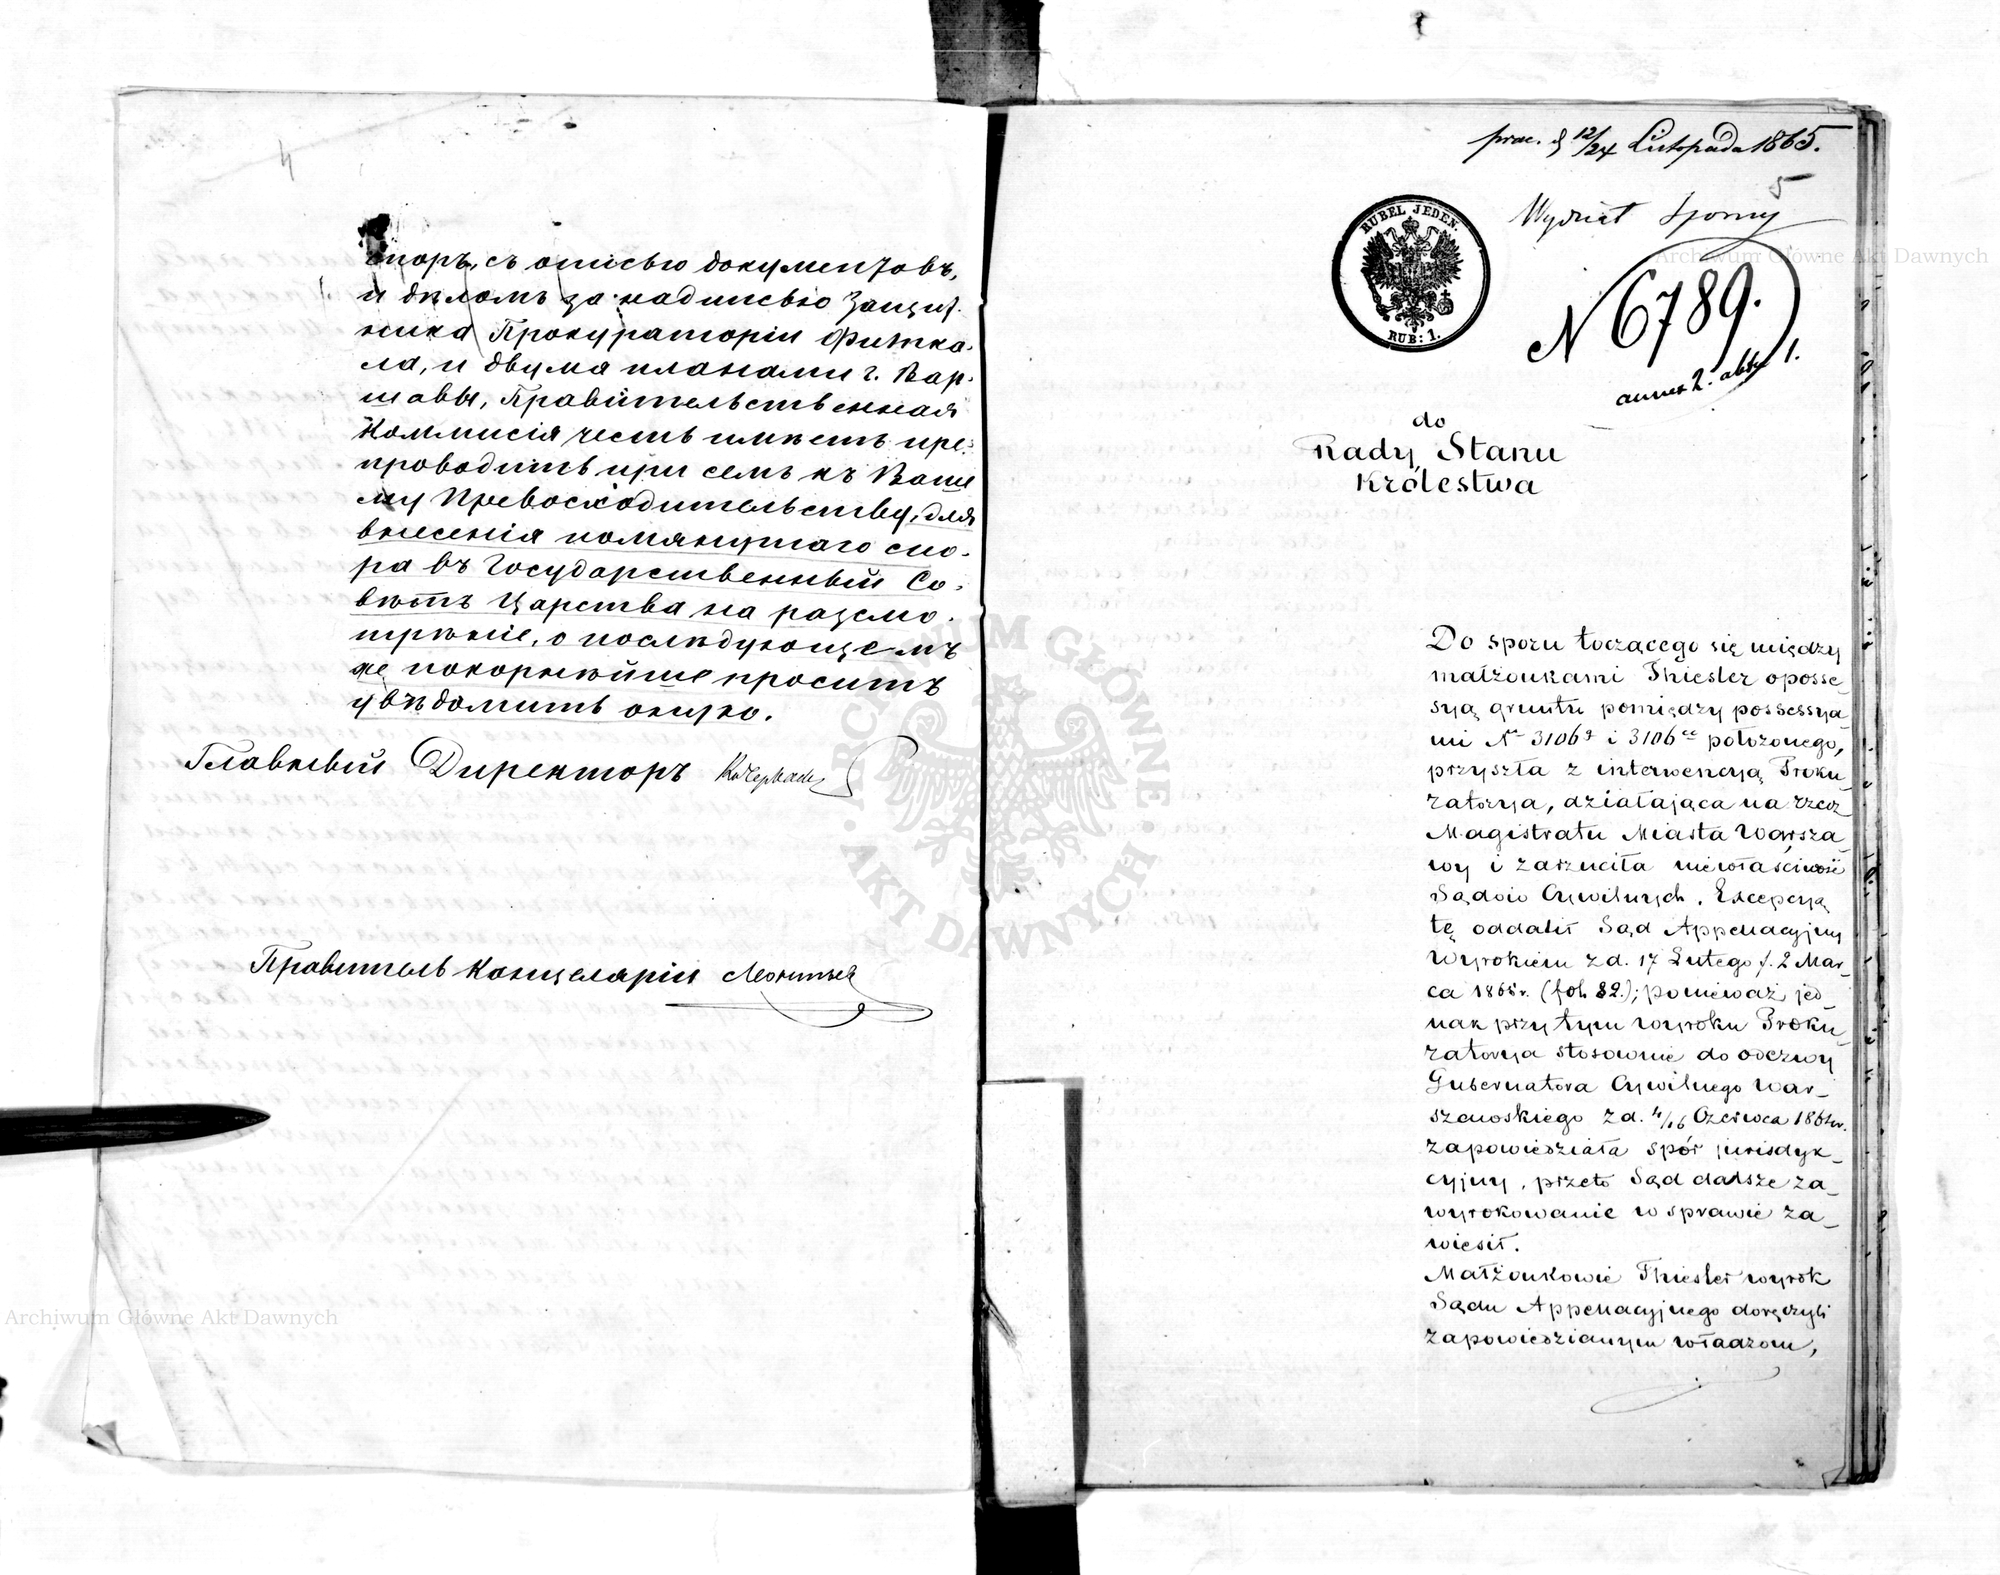 4
споръ, съ описью документовъ,
и дѣломъ за надписью Защит-
ника Прокураторіи Фиска-
ла, и двумя планами г. Вар-
шавы, Правительственная
Коммисія честь имѣетъ пре-
проводить при семъ къ Ваше
му Превосходительству, для
внесенія помянутаго спо-
ра въ Государственный Со-
вѣтъ Царства на разсмо-
трѣніе, о послѣдующемъ
же покорнѣйше проситъ
увѣдомить оную.
Главный Директоръ
Правитель Канцеляріи Леонтьев
12/24 Listopada 1865.
5
Wydział Sporny
RUBEL JEDEN.
RUB: 1.
N 6789.
annex 2.
do
Rady Stanu
Królestwa
Do sporu toczącego się między
małżonkami Thiesler o posse-
syą gruntu pomiędzy possessya-
mi No 3106 i 3106 położonego,
przyszła z interwencyą Proku-
ratorya, działająca na rzecz
Magistratu Miasta Warsza-
wy i zarzuciła niewłaściwość
Sądów Cywilnych. Excepcyą
tę oddalił Sąd Appellacyjny
Wyrokiem z d. 17 Lutego /. 2 Mar-
ca 1865 r. (fol. 82.); ponieważ jed-
nak przy tym wyroku Proku-
ratorya stosownie do odezwy
Gubernatora Cywilnego War-
szawskiego z d. 4/16 Czerwca 1864 r.
zapowiedziała spór jurisdyk-
cyjny, przeto Sąd dalsze za-
wyrokowanie w sprawie za-
wiesił.
Małżonkowie Thiesler wyrok
Sądu Appellacyjnego doręczyli
zapowiedzianym władzom,
ARCHIWUM GŁÓWNE · AKT DAWNYCH ·
Archiwum Główne Akt Dawnych
Archiwum Główne Akt Dawnych